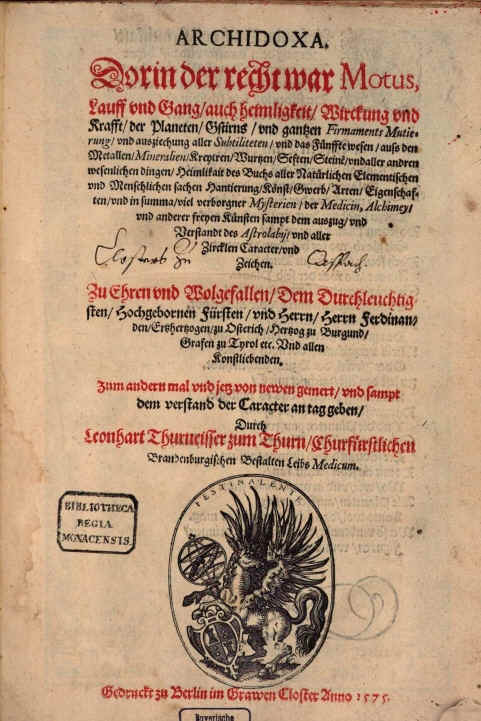 ARCHIDOXA.
Dorin der recht war Motus,
Lauff vnd Gang/auch heimligkeit/ Wirckung vnd
Krafft/ der Planeten/ Gstirns / vnd gantzen Firmaments Mutie-
rung/ vnd ausziehung aller Subtiliteten/ vnd das Fünffte wesen / auss den
Metallen/ Mineralien/ Kreyttren/ Wurtzen/ Sefften/ Steinẽ/ vnd aller andren
wesenlichen dingen/ Heimlikait des Buchs aller Natürlichen Elementischen
vnd Menschlichen sachen Hantierung/ Könst/ Gwerb/ Arten/ Eigenschaf-
ten/ vnd in summa/ viel verborgner Mysterien / der Medicin, Alchimey/
vnd anderer freyen Künsten sampt dem auszug/ vnd
Verstandt des Astrolabij/ vnd aller
Zircklen Caracter/ vnd
Zeichen.
Closters Zu
Zu Ehren vnd Wolgefallen/ Dem Durchleuchtig-
sten/ Hochgebornen Fürsten / vnd Herrn/ Herrn Ferdinan-
den/ Ertzhertzogen/ zu Osterich / Hertzog zu Burgund/
Grafen zu Tyrol etc. Vnd allen
Konstliebenden.
Zum andern mal vnd jetz von newen gemert/ vnd sampt
dem verstand der Caracter an tag geben/
Durch
Leonhart Thurneisser zum Thurn/ Churfürstlichen
Brandenburgischen Bestalten Leibs Medicum.
FESTINA LENTE
BIBLIOTHECA
REGIA
MONACENSIS.
Gedruckt zu Berlin im Grawen Closter Anno 1575.
Bayerische